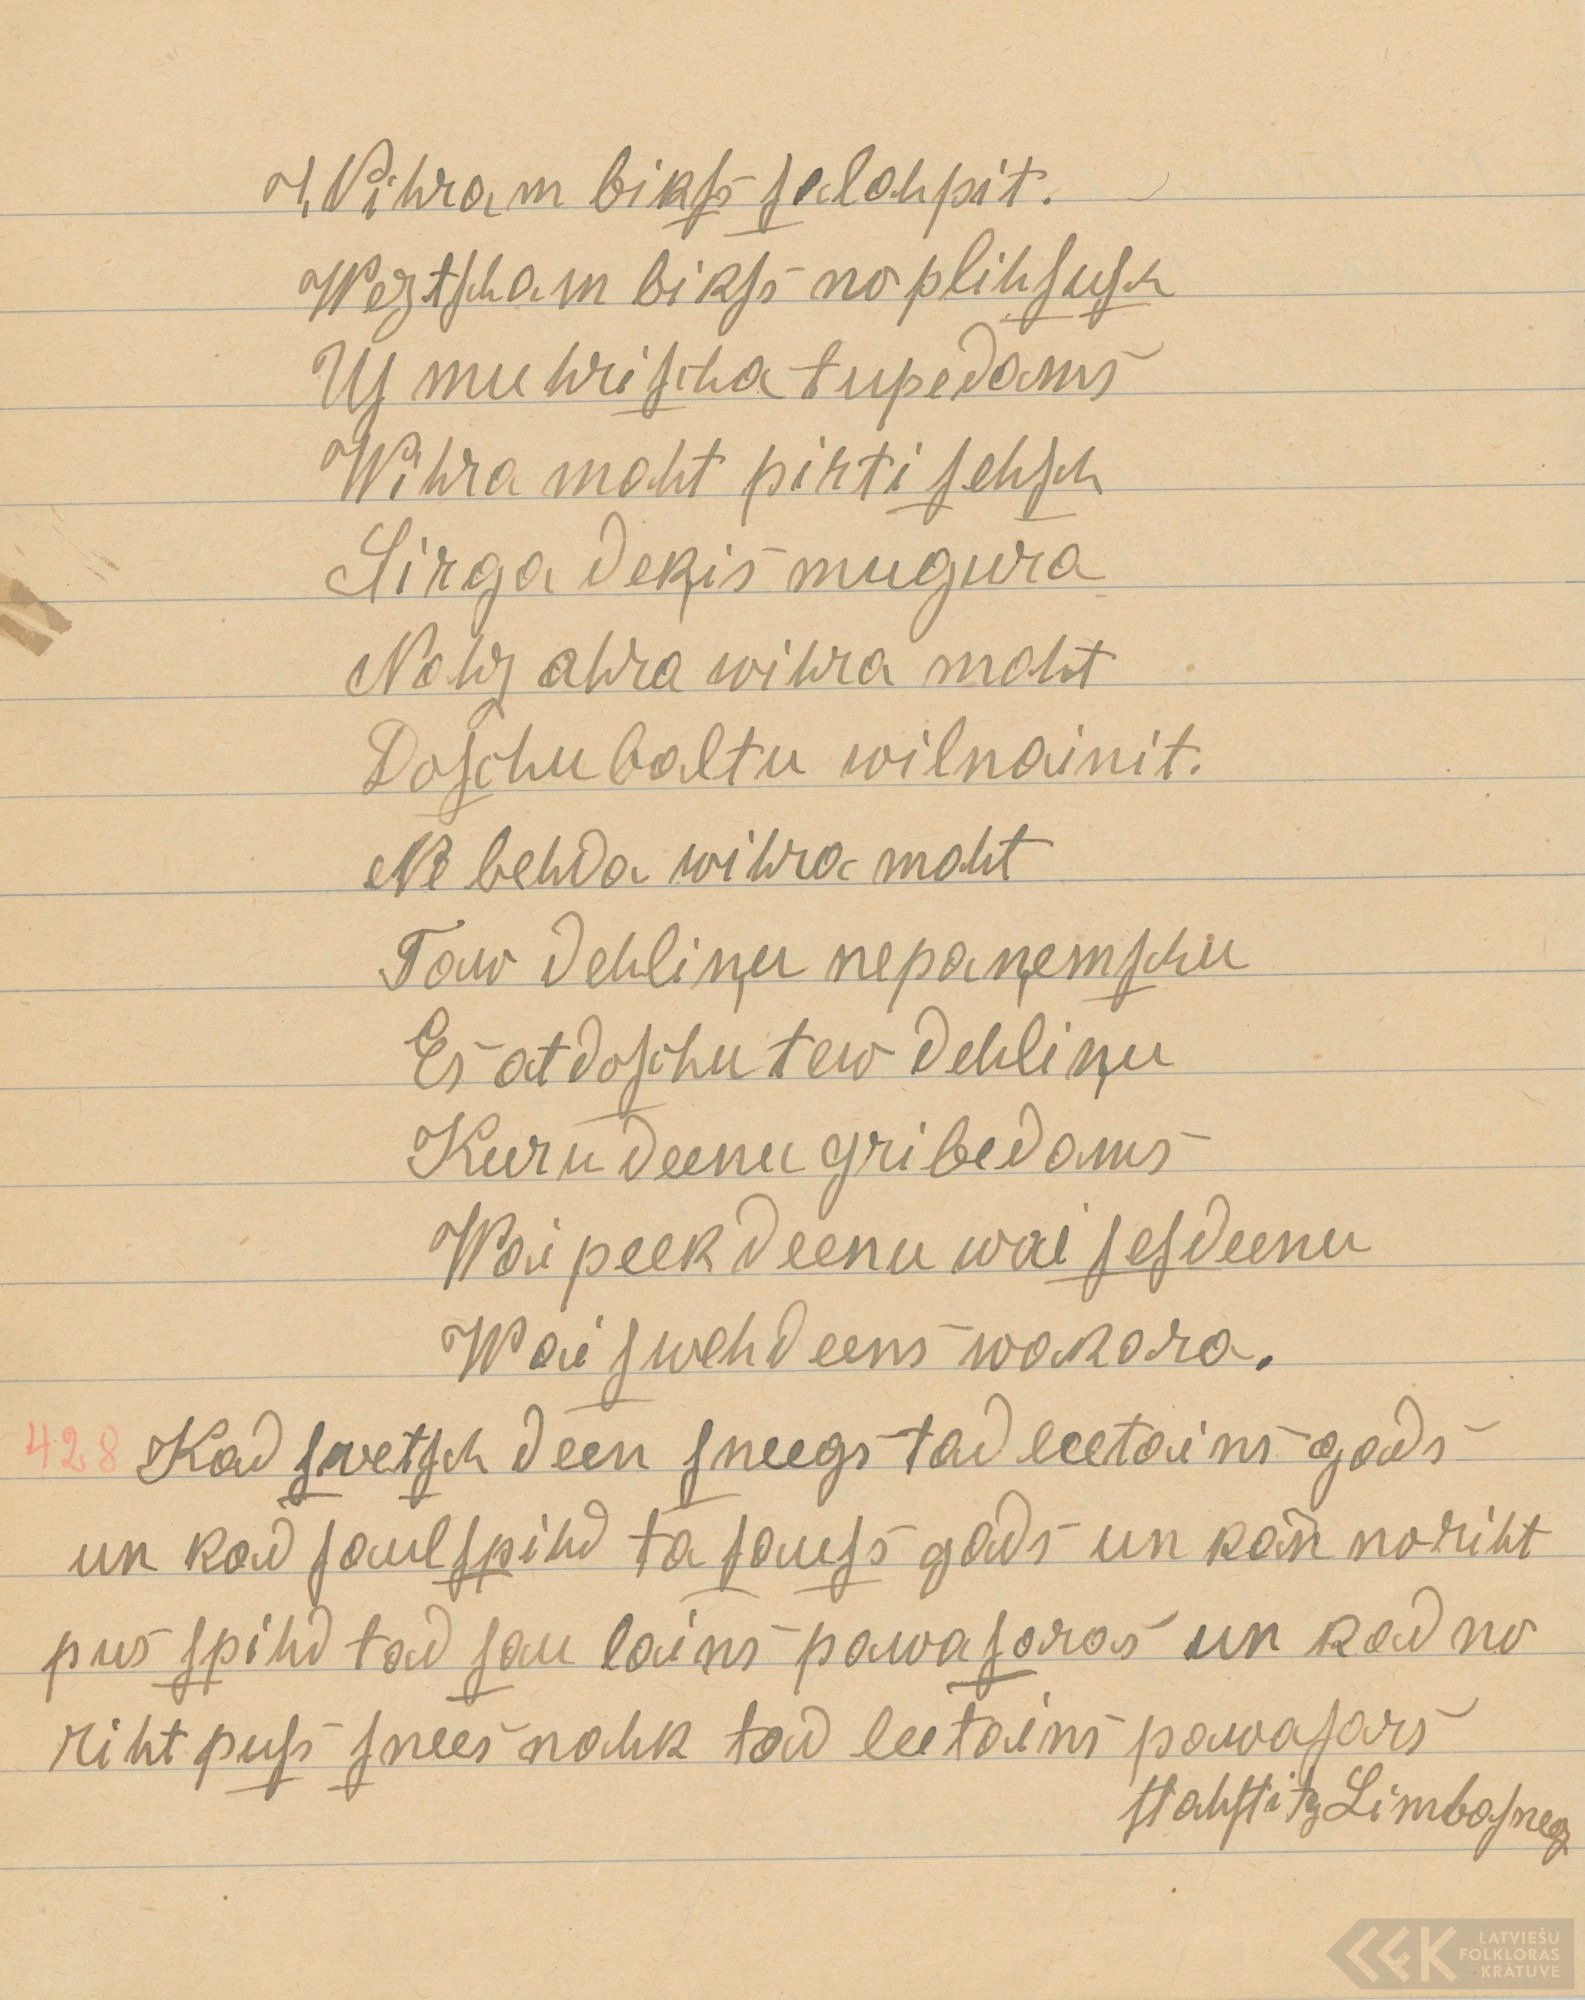 1, Wihram bikſs ſalahpit.
Wezſcham bikſs noplihſuſch
Uſ muhriſcha tupedams
Wihra maht pirti ſehſch
Sirga deķis mugura
Nahz ahra wihra maht
Doſchu baltu wilnainit.
Ne behda wihra maht
Taw dehliņu nepaņemſchu
Es atdoſchu tew dehliņu
Kuru deenu gribedams
Wai peekdeenu wai ſeſdeenu
Wai ſwehdeens wakara.
428 Kad ſwetſch deen ſneegs tad leetains gads
un kad ſaul ſpihd ta ſauſs gads un kad no riht
pus ſpihd tad ſau lains pawaſaras un kad no
riht puſs ſnees nahk tad leetains pawaſars
ſtahſtitz Limbaſneez
LATVIEŠU
FOLKLORAS
KRĀTUVE